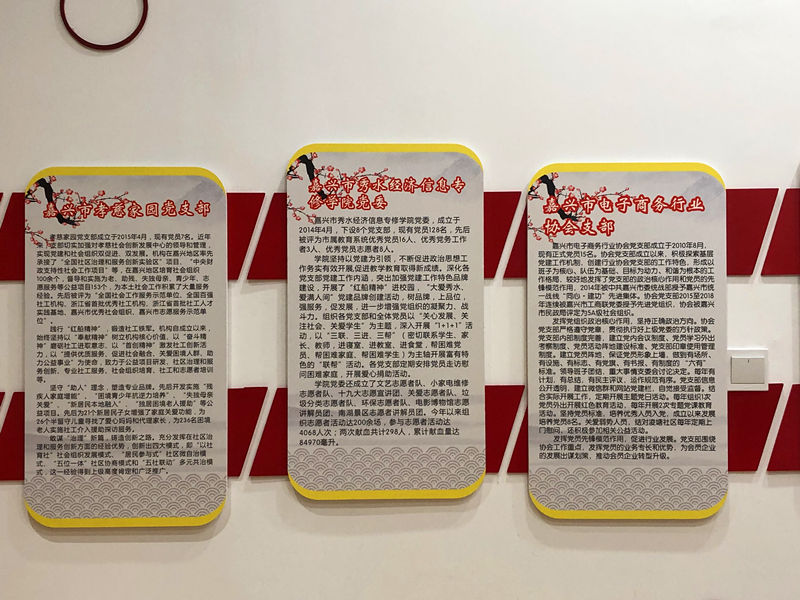 嘉兴市孝慈家园党支部
孝慈家园党支部成立于2015年4月,现有党员7名。近年
来,党支部切实加强对孝慈社会创新发展中心的领导和管理,
实现党建和社会组织双促进、双发展。机构在嘉兴地区率先
承接了“全国社区治理和服务创新实验区”项目、“中央财
政支持性社会工作项目”等,在嘉兴地区培育社会组织
100余个,督导和实施为老、助残、失独母亲、青少年、志
愿服务等公益项目153个,为本土社会工作积累了大量服务
经验。先后被评为“全国社会工作服务示范单位、全国百强
社工机构、浙江省首批优秀社工机构、浙江省首批社工人才
实践基地、嘉兴市优秀社会组织、嘉兴市志愿服务示范单
位”。
践行“红船精神”,锻造社工铁军。机构自成立以来,
始终坚持以“奉献精神”树立机构核心价值、以“奋斗精
神”磨砺社工进取意志、以“首创精神”激发社工创新活
力,以“提供优质服务、促进社会融合、关爱困境人群、助
力公益事业”为使命,致力于公益项目研发、社区治理和服
务创新、专业社工服务、社会组织培育、社工和志愿者培训
等。
坚守“助人”理念,塑造专业品牌。先后开发实施“残
疾人家庭增能”、“困境青少年抗逆力培养”、“失独母亲
关爱”、“新居民本地融入”、“独居困境老人援助”等公
益项目。先后为21个新居民子女增强了家庭关爱功能,为
26个半留守儿童寻找了爱心妈妈和代理家长,为236名困境
老人实施社工介入援助探访服务。
敢谋“治理”新篇,铸造创新之路。充分发挥在社区治
理和服务创新方面的经验优势,创新出四大模式,即“以社
育社”社会组织发展模式、“居民参与式”社区微自治模
式、“五位一体”社区协商模式和“五社联动”多元共治模
式,这一经验得到上级高度肯定和广泛推广。
嘉兴市秀水经济信息专
修学院党委
嘉兴市秀水经济信息专修学院党委,成立于
2014年4月,下设8个党支部,现有党员128名,先后
被评为市属教育系统优秀党员16人、优秀党务工作
者3人、优秀党员志愿者8人。
学院坚持以党建为引领,不断促进政治思想工
作务实有效开展,促进教学教育取得新成绩。深化各
党支部党建工作内涵,突出加强党建工作特色品牌
建设,开展了“红船精神”进校园,“大爱秀水、
爱满人间”党建品牌创建活动,树品牌,上品位,
强服务,促发展,进一步增强党组织的凝聚力、战
斗力。组织各党支部和全体党员以“关心发展、关
注社会、关爱学生”为主题,深入开展“1+1+1”活
动,以“三联、三进、三帮”(密切联系学生、家
长、教师,进寝室、进教室、进食堂,帮困难党
员、帮困难家庭、帮困难学生)为主轴开展富有特色
的“联帮”活动。各党支部定期安排党员走访慰
问困难家庭,开展爱心捐助活动。
学院党委还成立了文艺志愿者队、小家电维修
志愿者队、十九大志愿宣讲团、关爱志愿者队、垃
圾分类志愿者队、环保志愿者队、电影博物馆志愿
讲解员团、南湖景区志愿者讲解员团。今年以来组
织志愿者活动达200余场,参与志愿者活动达
4068人次;两次献血共计298人,累计献血量达
84970毫升。
嘉兴市电子商务行业
协会支部
嘉兴市电子商务行业协会党支部成立于2010年8月,
现有正式党员15名。协会党支部成立以来,积极探索基层
党建工作机制,创建行业协会党支部的工作特色,形成以
班子为核心、队伍为基础、目标为动力、和谐为根本的工
作格局,较好地发挥了党支部的政治核心作用和党员的先
锋模范作用,2014年被中共嘉兴市委统战部授予嘉兴市统
一战线“同心·建功”先进集体。协会党支部2015至2018
年连续被嘉兴市工商联党委授予先进党组织,协会被嘉兴
市民政局评定为5A级社会组织。
发挥党组织政治核心作用,坚持正确政治方向。协会
党支部严格遵守党章,贯彻执行好上级党委的方针政策。
党支部内部制度完善,建立党内会议制度、党员学习外出
考察制度、党员活动阵地建设标准、党支部印章使用管理
制度。建立党员阵地,保证党员形象上墙,做到有场所、
有设施、有标志、有党旗、有书报、有制度的“六有”
标准。领导班子团结,重大事情支委会讨论决定。每年有
计划,有总结,有民主评议,运作规范有序。党支部信息
公开透明,建立微信群和网站党建栏,自觉接受监督。结
合实际开展工作,定期开展主题党日活动。每年组织1次
党员外出开展红色教育活动,每年开展2次专题党课教育
活动。坚持党员标准,培养优秀人员入党,成立以来发展
培养党员8名。关爱弱势人员,结对凌塘社区每年定期上
门慰问,还积极参加相关公益活动。
发挥党员先锋模范作用,促进行业发展。党支部围绕
协会工作重点,发挥党员的业务专长和优势,为会员企业
的发展出谋划策,推动会员企业转型升级。